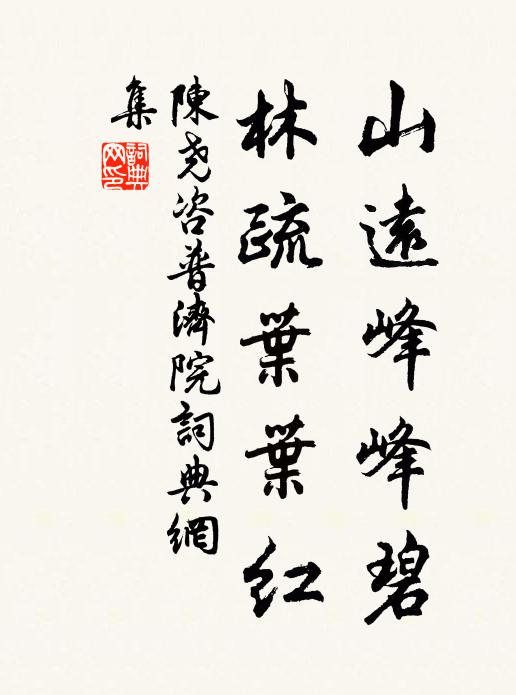 山遠峰峰碧
林疏葉葉紅
陳堯咨普濟院詞典網
集
詞典
网印